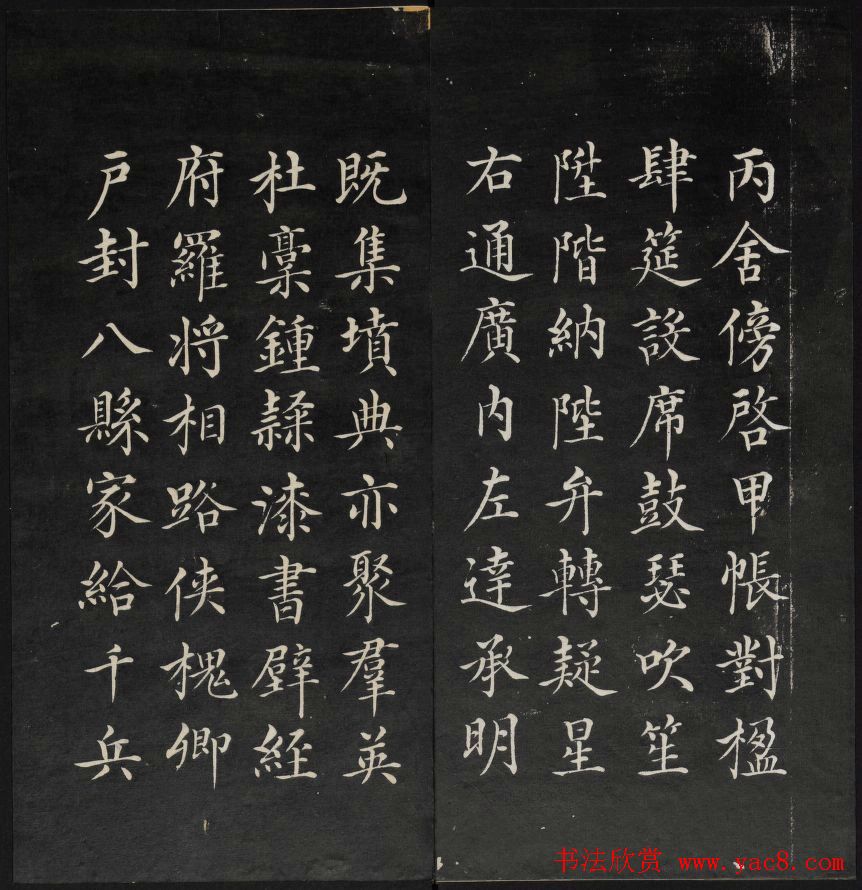 丙舍傍啓甲帳對楹
肆筵設席鼓瑟吹笙
陞階納陛弁轉疑星
右通廣内左達承明
既集墳典亦聚羣英
杜稾鍾隸漆書壁經
府羅将相路俠槐卿
户封八縣家給千兵
书法欣赏 www.yac8.com